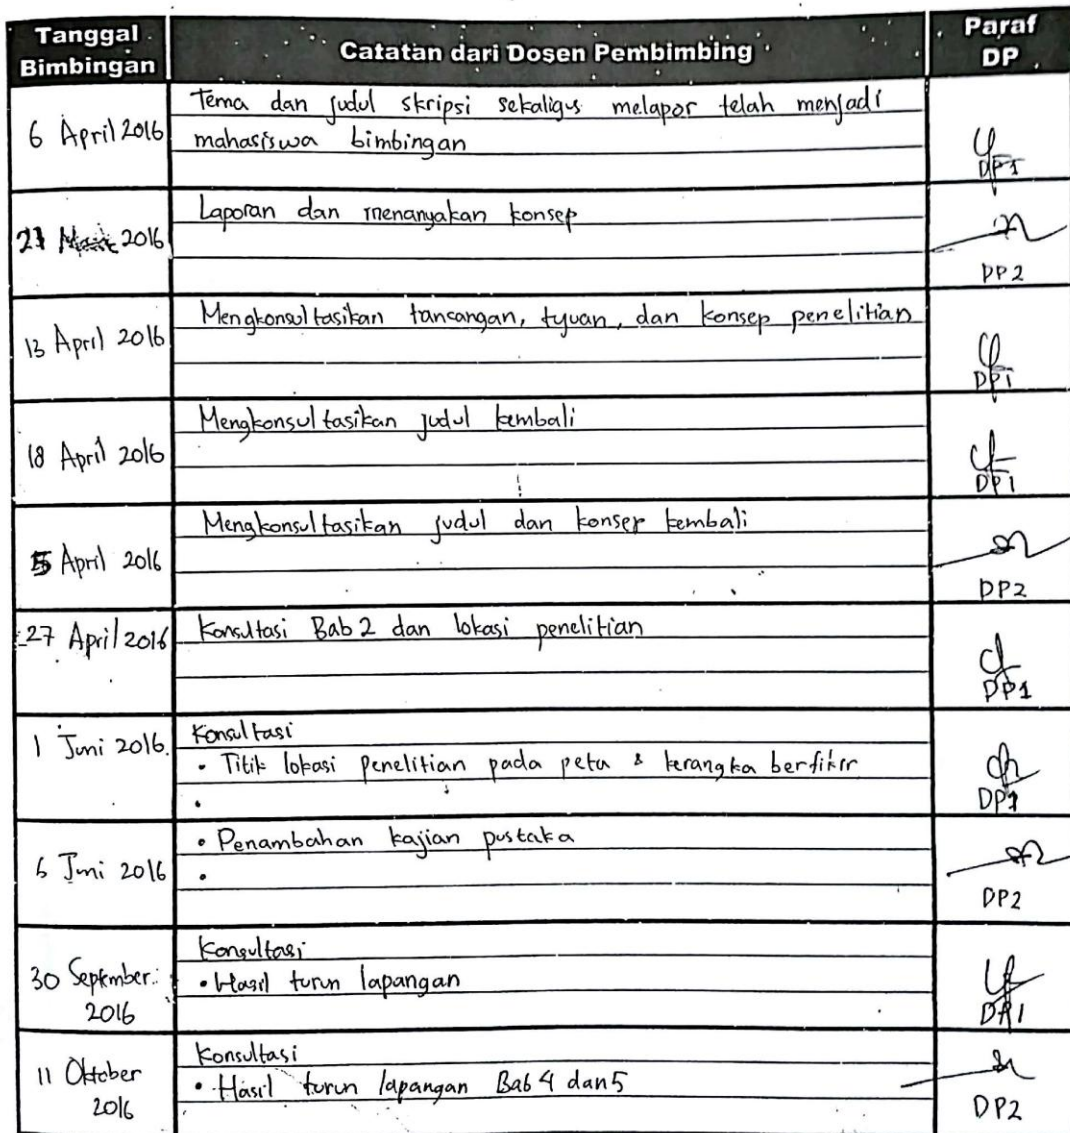 Tanggal Bimbingan
Catatan dari Dosen Pembimbing
Paraf DP
6 April 2016
Tema dan judul skripsi sekaligus melapor telah menjadi
mahasiswa bimbingan
DP1
2016
Laporan dan menanyakan konsep
DP2
13 April 2016
Mengkonsultasikan rancangan, tujuan, dan konsep penelitian
DP1
18 April 2016
Mengkonsultasikan judul kembali
DP1
5 April 2016
Mengkonsultasikan judul dan konsep kembali
DP2
27 April 2016
Konsultasi Bab 2 dan lokasi penelitian
DP1
1 Juni 2016
Konsultasi
• Titik lokasi penelitian pada peta & kerangka berfikir
•
DP1
6 Juni 2016
• Penambahan kajian pustaka
•
DP2
30 September
2016
Konsultasi
• Hasil turun lapangan
DP1
11 Oktober
2016
Konsultasi
• Hasil turun lapangan Bab 4 dan 5
DP2